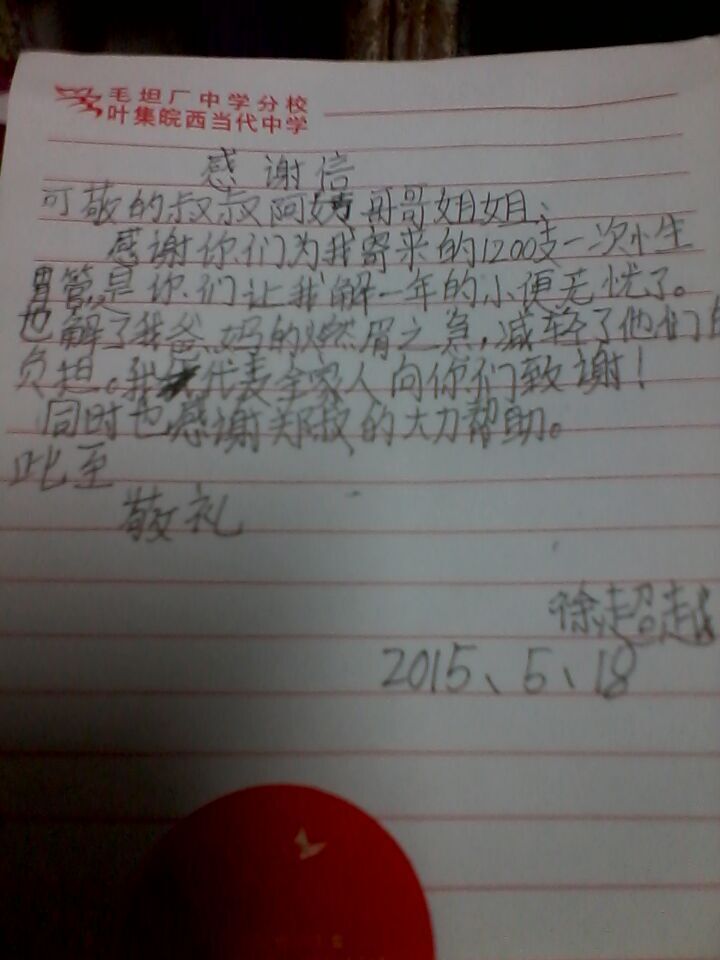 毛坦厂中学分校
叶集皖西当代中学
感谢信
可敬的叔叔阿姨哥哥姐姐、
感谢你们为我寄来的1200支一次小生
胃管是你们让我解一年的小便无忧了。
也解了我爸妈的燃眉之急,减轻了他们的
负担。我代表全家人向你们致谢!
同时也感谢郑叔的大力帮助。
此至
敬礼
徐超越
2015、5、18